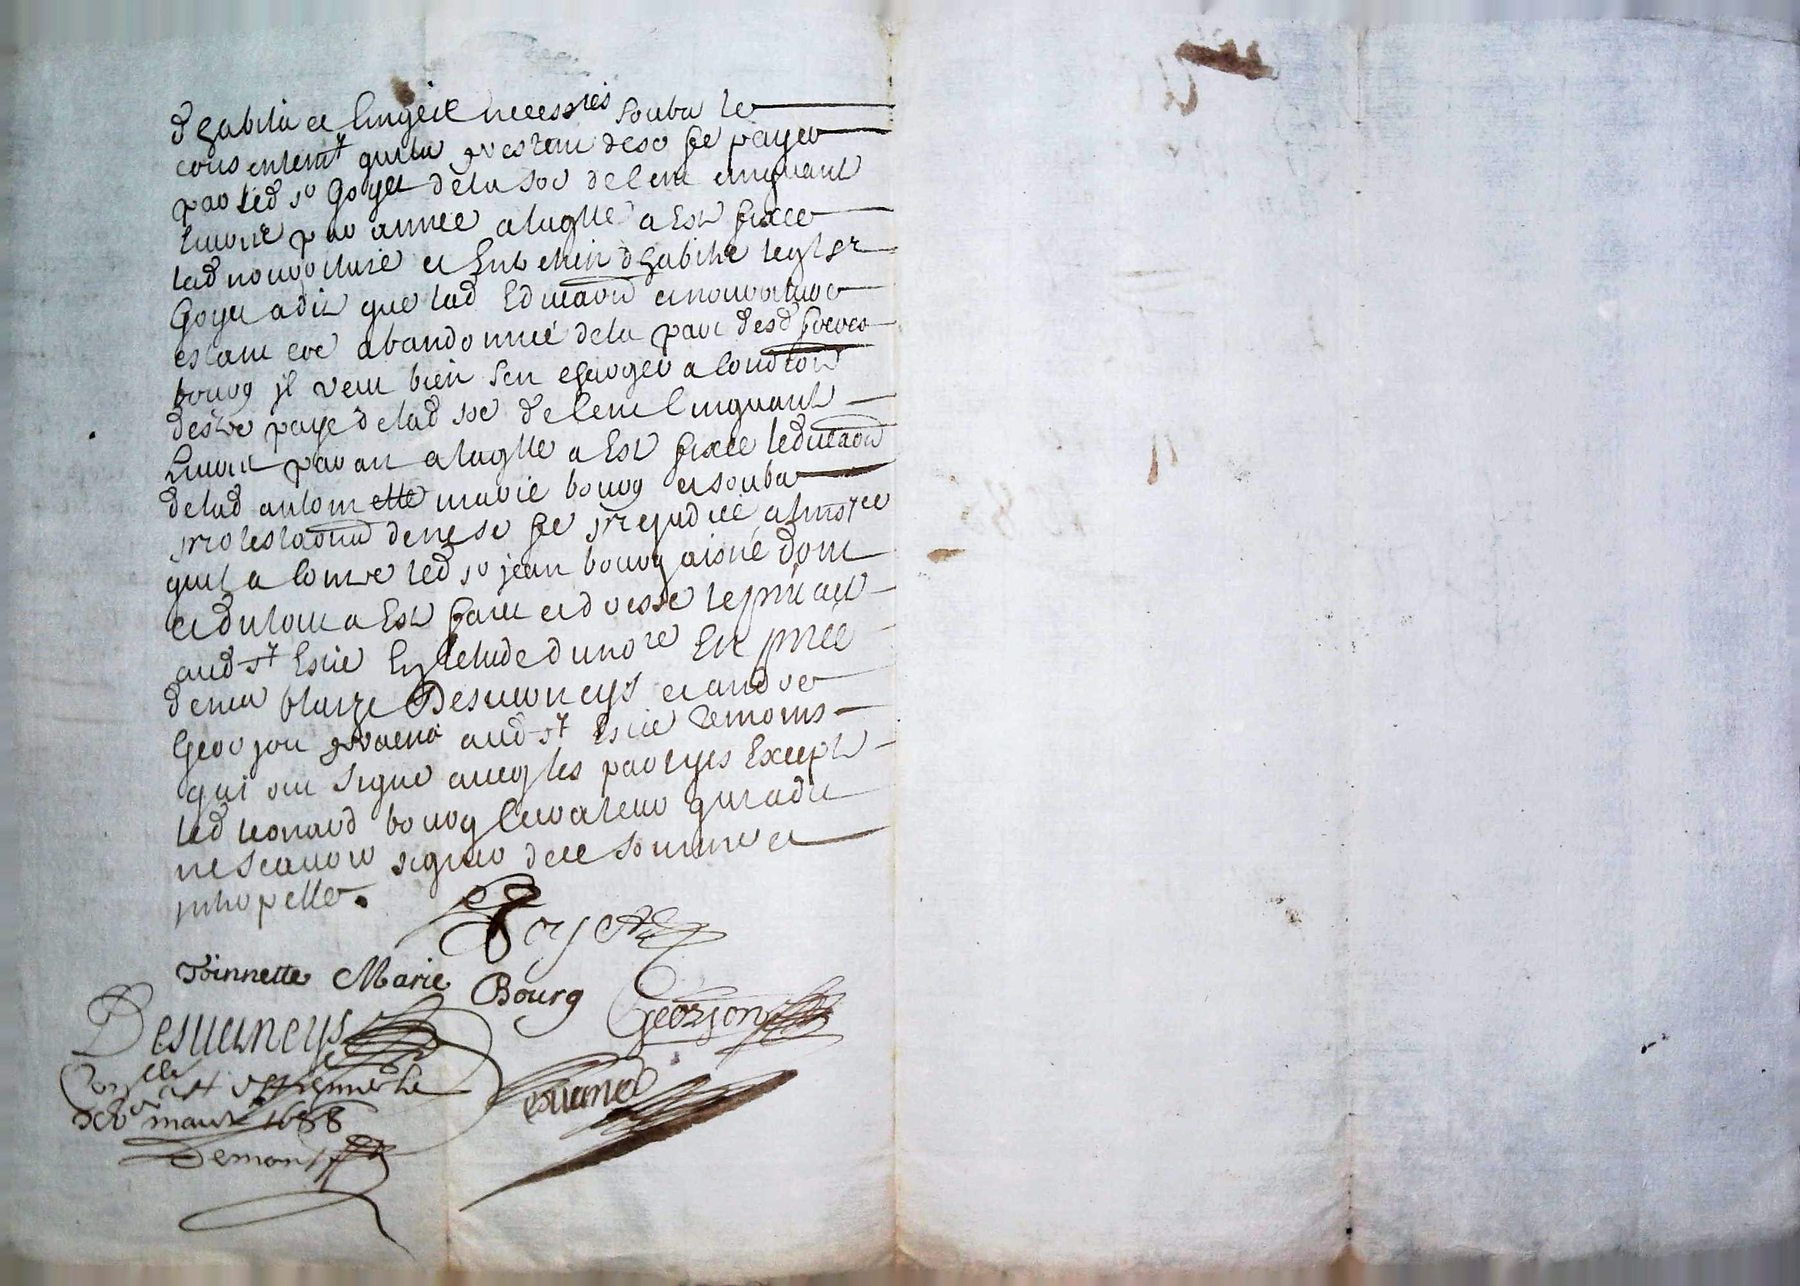 dhabitz et lingeze necessres soubz le
consentemt quilz prestent deso fe payer
par led sr Goyet de la soe de cent cinquant
livres par annee a laqlle a est fixee
lad nourriture et entretien dhabitz leql sr
Goyet a dit que lad education et nourriture
estant ece abandonnée de la part desd freres
bourg il veut bien sen charger a condition
destre paye de lad soe de cent cinquant
livres par an a laqlle a est fixee leducation
de lad antoinette marie bourg et soubz
protestaons de ne se fe prejudice
quil a contre led sr jean bourg aisné dont
et du tout a est faict et dresse le pnt act
aud st Estie Estude du nore En pnce
de mr blaize Desverneys et andre
Georjon aud st Estie temoins
qui ont signe avecq les partyes Except
led leonard bourg curateur qui a dit
ne scavoir signer de ce somme et
interpelle.
Goyet
Toinnette Marie Bourg
Desverneys Georjon
st Estienne le
mars 1688
Demont